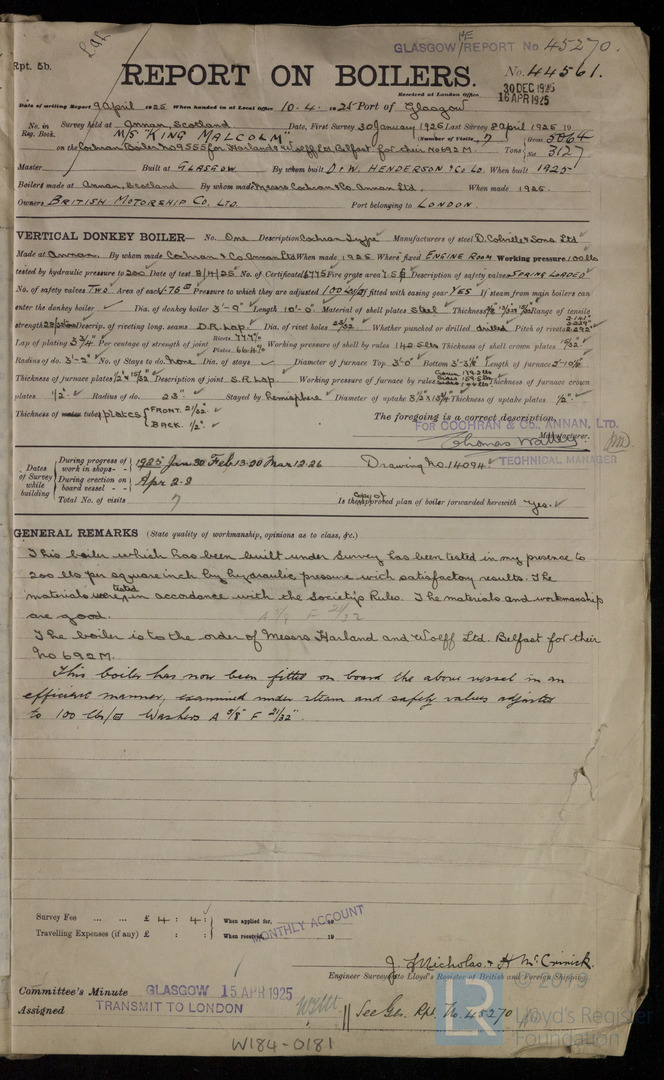 GLASGOW REPORT No 45270.
Rpt. 5b.
REPORT ON BOILERS.
No. 44561.
30 DEC 1925
16 APR 1925
Received at London Office
Date of writing Report 9 April 1925 When handed in at Local Office 10.4.1925 Port of Glasgow
No. in Reg. Book. Survey held at Annan, Scotland Date, First Survey 30 January 1925 Last Survey 8 April 1925 19
(Number of Visits 7)
on the M/S "KING MALCOLM" Tons Gross 5064 Net 3127
Cochran Boiler No 9555 for Harland & Wolff Ltd Belfast for their No 692 M.
Master Built at GLASGOW By whom built D. & W. HENDERSON & Co LD. When built 1925
Boilers made at Annan, Scotland By whom made Messrs Cochran & Co. Annan Ltd. When made 1925.
Owners BRITISH MOTORSHIP CO. LTD. Port belonging to LONDON
VERTICAL DONKEY BOILER— No. One Description Cochran Type Manufacturers of steel D. Colville & Sons Ltd
Made at Annan By whom made Cochran & Co. Annan Ltd When made 1925 Where fixed ENGINE ROOM Working pressure 100 lbs
tested by hydraulic pressure to 200 Date of test 8/4/25 No. of Certificate 16775 Fire grate area Description of safety valves SPRING LOADED
No. of safety valves TWO Area of each Pressure to which they are adjusted 100 lbs If fitted with easing gear YES If steam from main boilers can
enter the donkey boiler Dia. of donkey boiler 3'-9" Length 10'-0" Material of shell plates Steel Thickness Range of tensile
strength Descrip. of riveting long. seams D.R. Lap. Dia. of rivet holes Whether punched or drilled drilled Pitch of rivets
Lap of plating 3 3/4 Per centage of strength of joint Rivets Plates Working pressure of shell by rules 142.5 lbs Thickness of shell crown plates 19/32
Radius of do. 3'-2" No. of Stays to do. None Dia. of stays Diameter of furnace Top 3'-0" Bottom Length of furnace
Thickness of furnace plates Description of joint S.R. Lap. Working pressure of furnace by rules Thickness of furnace crown
plates 1/2" Radius of do. 23" Stayed by Hemisphere Diameter of uptake Thickness of uptake plates 1/2"
Thickness of tube plates FRONT. 21/32" BACK. 1/2"
The foregoing is a correct description,
FOR COCHRAN & CO., ANNAN, LTD.
Manufacturer.
TECHNICAL MANAGER
Dates of Survey while building
During progress of work in shops - - 1925 Jan 30 Feb 13-20 Mar 12-26
During erection on board vessel - - Apr 2-8
Total No. of visits 7
Drawing No. 14094
Is the Copy of approved plan of boiler forwarded herewith Yes.
GENERAL REMARKS (State quality of workmanship, opinions as to class, &c.)
This boiler which has been built under survey has been tested in my presence to
200 lbs per square inch by hydraulic pressure with satisfactory results. The
materials were tested in accordance with the Society's Rules. The materials and workmanship
are good.
The boiler is to the order of Messrs Harland and Wolff Ltd. Belfast for their
No 692 M.
This boiler has now been fitted on board the above vessel in an
efficient manner, examined under steam and safety valves adjusted
to 100 lbs/□" Washers A 3/8" F 21/32".
Survey Fee ... ... £ 4 : 4 : When applied for, 19
Travelling Expenses (if any) £ : : When received, 19
MONTHLY ACCOUNT
J. J. Nicholas. & H. McCririck.
Engineer Surveyor to Lloyd's Register of British and Foreign Shipping.
Committee's Minute GLASGOW 15 APR 1925
Assigned TRANSMIT TO LONDON
See Gls. Rpt. No. 45270
W184-0181
© 2019
LR
Lloyd's Register
Foundation